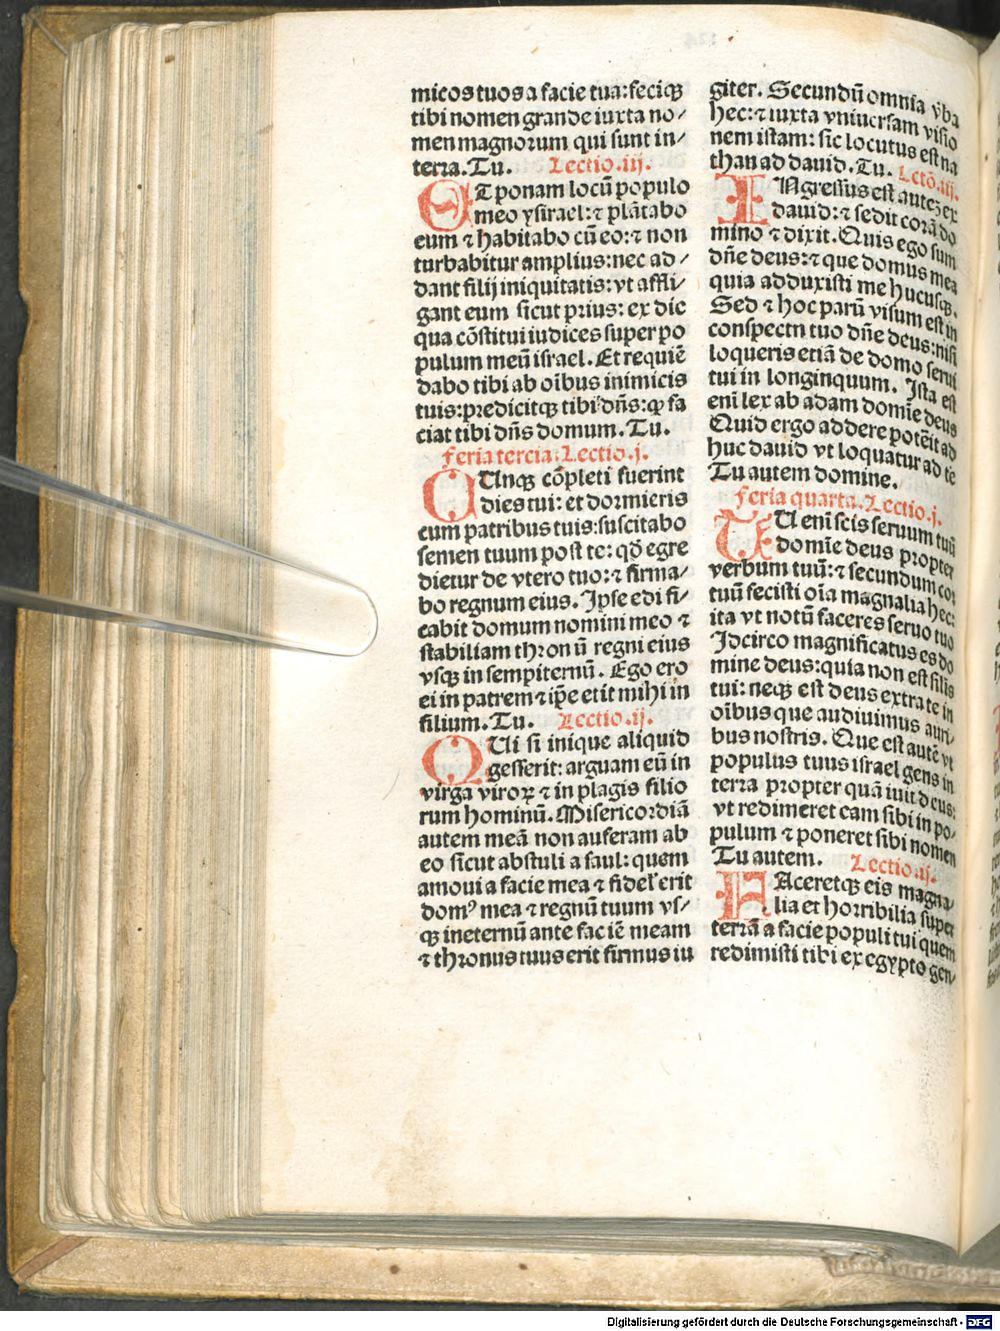 micos tuos a facie tua: feciqꝫ
tibi nomen grande iuxta no⸗
men magnorum qui sunt in⸗
terra. Tu. Lectio .iij.
ET ponam locū populo
meo ysrael: ⁊ plātabo
eum ⁊ habitabo cū eo: ⁊ non
turbabitur amplius: nec ad⸗
dant filij iniquitatis: vt affli⸗
gant eum sicut prius: ex dic
qua cōstitui iudices super po
pulum meū israel. Et requiē
dabo tibi ab oībus inimicis
tuis: predicitqꝫ tibi dñs: ꝙ fa
ciat tibi dñs domum. Tu.
feria tercia. Lectio .j.
CUnqꝫ cōpleti fuerint
dies tui: et dormieris
cum patribus tuis: suscitabo
semen tuum post te: qd̄ egre
dietur de vtero tuo: ⁊ firma⸗
bo regnum eius. Ipse edi fi⸗
cabit domum nomini meo ⁊
stabiliam thron ū regni eius
vsqꝫ in sempiternū. Ego ero
ei in patrem ⁊ ip̄e etit mihi in
filium. Tu. Lectio .ij.
QUi si inique aliquid
gesserit: arguam eū in
virga viroꝝ ⁊ in plagis filio
rum hominū. Misericordiā
autem meā non auferam ab
eo sicut abstuli a saul: quem
amoui a facie mea ⁊ fidel' erit
domꝰ mea ⁊ regnū tuum vs⸗
qꝫ ineternū ante fac iē meam
⁊ thronus tuus erit firmus iu
giter. Secundū omnia v̄ba
hec: ⁊ iuxta vniuersam visio
nem istam: sic locutus est na
than ad dauid. Tu. Lctō .iij.
INgressus est auteꝫ ex
dauid: ⁊ sedit corā do
mino ⁊ dixit. Quis ego sum
dn̄e deus: ⁊ que domus mea
quia adduxisti me hucusqꝫ.
Sed ⁊ hoc parū visum est in
conspectn tuo dn̄e deus: nisi
loqueris etiā de domo serui
tui in longinquum. Ista est
enī lex ab adam domīe deus
Quid ergo addere potēit ad
huc dauid vt loquatur ad te
Tu autem domine.
feria quarta. Lectio .j.
TU enī scis seruum tuū
domīe deus propter
verbum tuū: ⁊ secundum cor
tuū fecisti oīa magnalia hec:
ita vt notū faceres seruo tuo
Idcirco magnificatus es do
mine deus: quia non est silis
tui: neqꝫ est deus extra te in
oībus que audiuimus auri⸗
bus nostris. Que est autē vt
populus tuus israel gens in
terra propter quā iuit deus:
vt redimeret eam sibi in po⸗
pulum ⁊ poneret sibi nomen
Tu autem. Lectio .ij.
FAceretqꝫ eis magna⸗
lia et horribilia super
terrā a facie populi tui quem
redimisti tibi ex egypto gen⸗
Digitalisierung gefördert durch die Deutsche Forschungsgemeinschaft - DFG